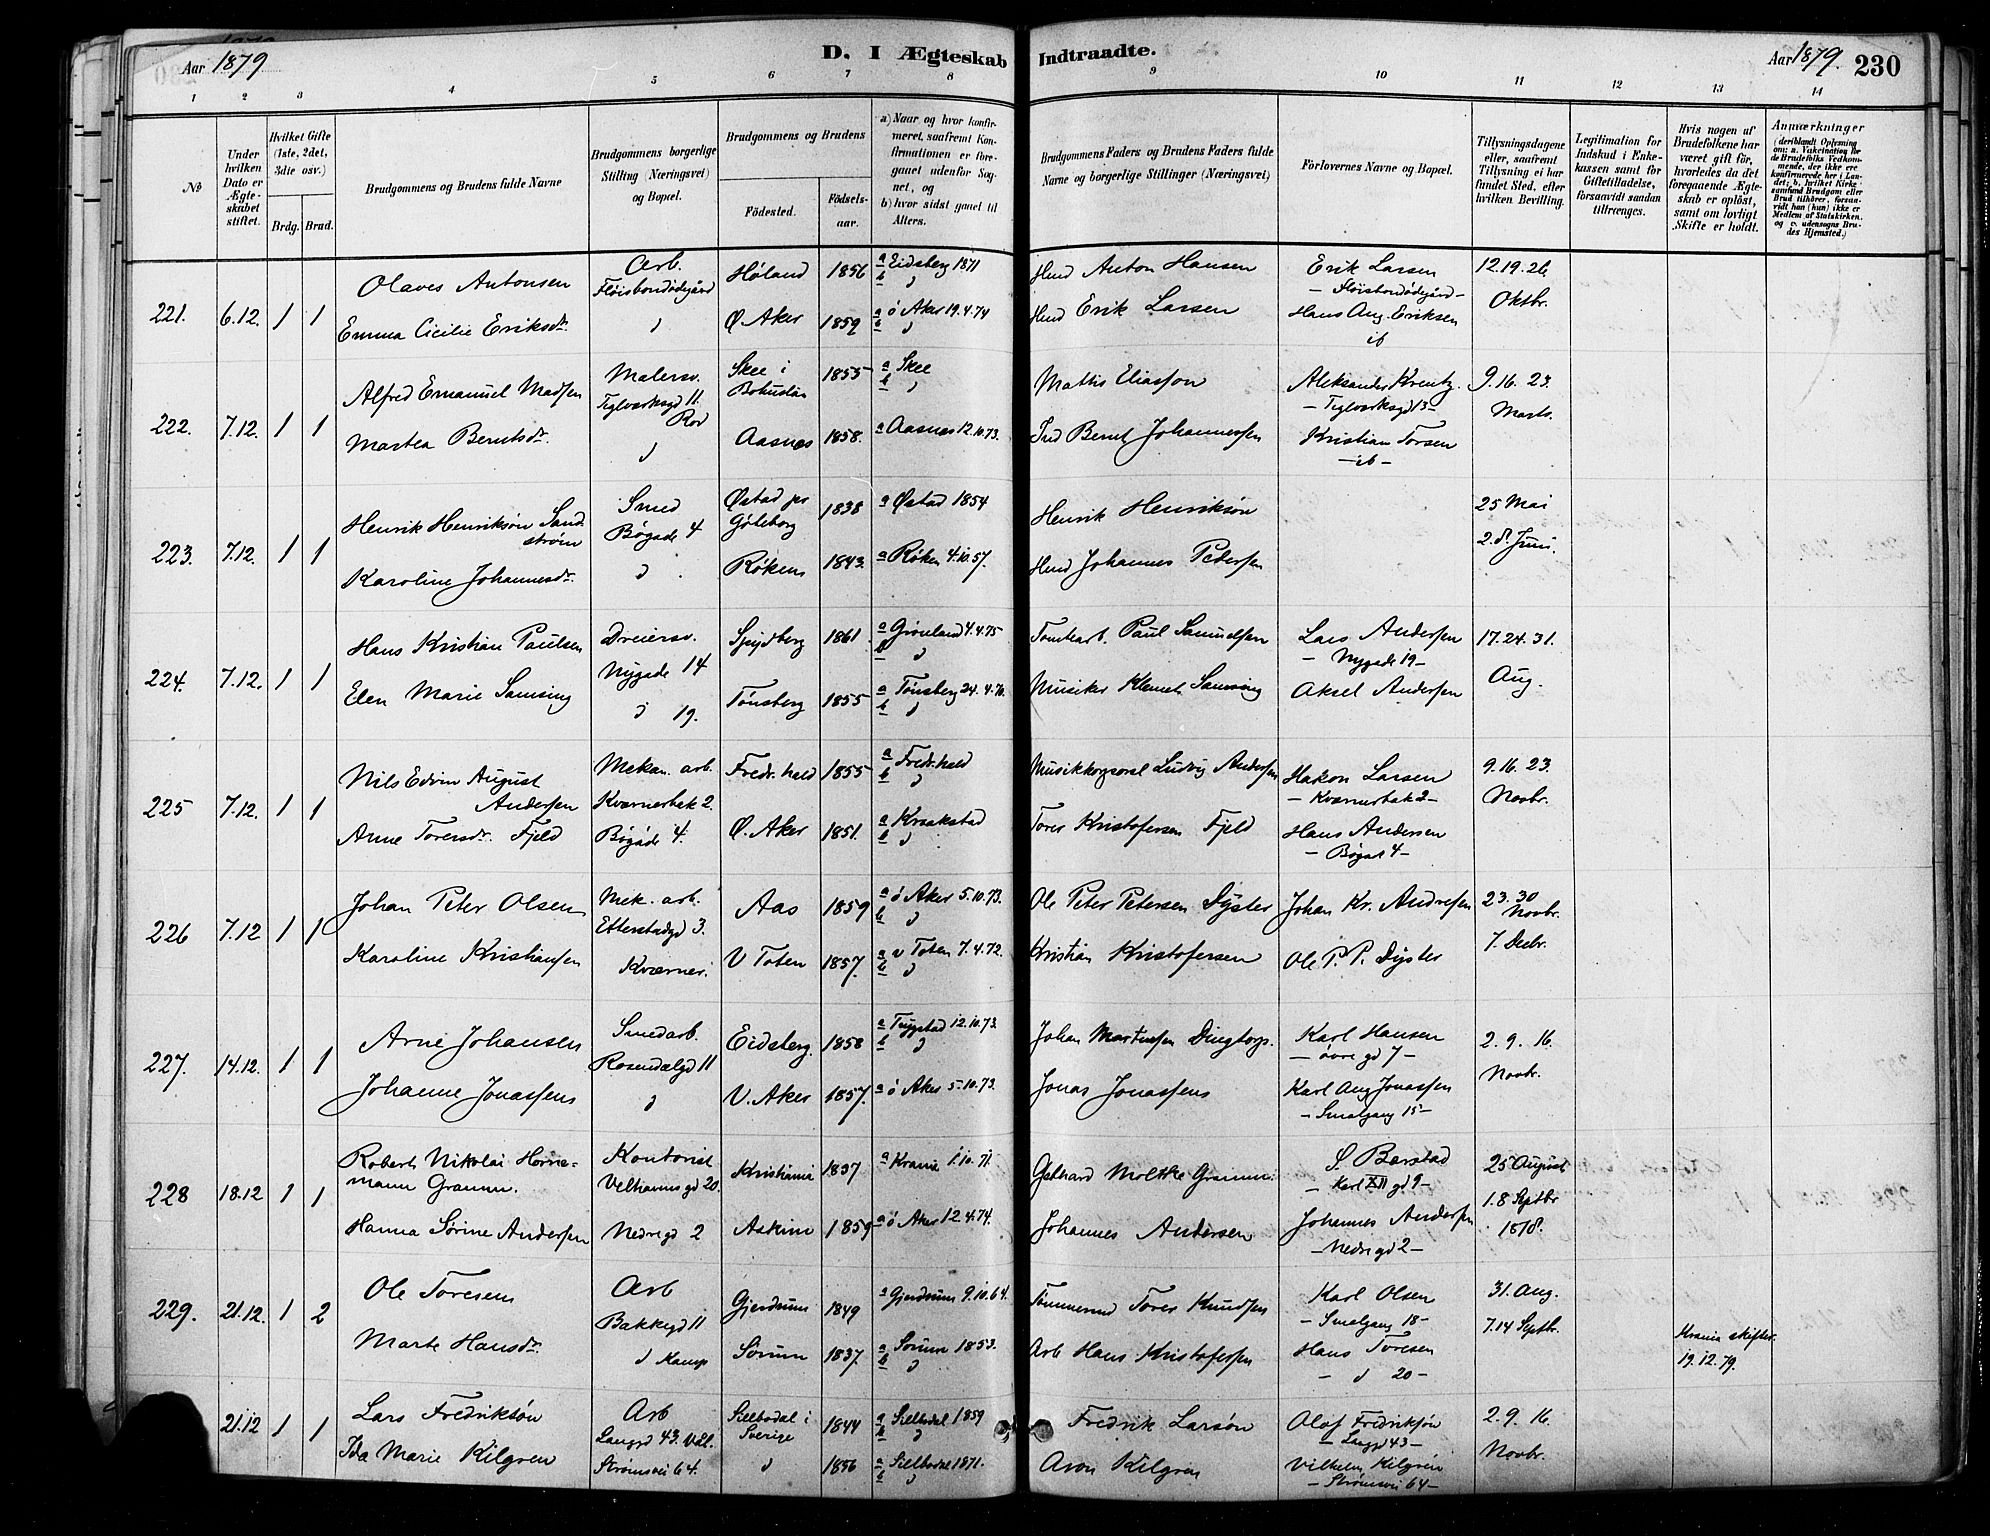 Aar 1879
D. I Ægteskab Indtraadte.
Aar 1879. 230
1 2 3 4 5 6 7 8 9 10 11 12 13 14
No
Under hvilken Dato er Ægteskabet stiftet.
Hvilket Gifte (1ste, 2det, 3die osv.)
Brdg. Brud.
Brudgommens og Brudens fulde Navne
Brudgommens borgerlige Stilling (Næringsvei) og Bopæl.
Brudgommens og Brudens
Födested. Födsels-aar.
a) Naar og hvor konfirmeret, saafremt Konfirmationen er foregaaet udenfor Sognet, og b) hvor sidst gaaet til Alters.
Brudgommens Faders og Brudens Faders fulde Navne og borgerlige Stillinger (Næringsvei)
Forlovernes Navne og Bopæl.
Tillysningsdagene eller, saafremt Tillysning ei har fundet Sted, efter hvilken Bevilling.
Legitimation for Indskud i Enkekassen samt for Giftetilladelse, forsaavidt saadan tiltrænges.
Hvis nogen af Brudefolkene har været gift för, hvorledes da det foregaaende Ægteskab er oplöst, samt om lovligt Skifte er holdt.
Anmærkninger (deriblandt Oplysning om: a. Vakcination for de Brudefolks Vedkommende, der ikke ere konfirmerede her i Landet; b. hvilket Kirkesamfund Brudgom eller Brud tilhörer, forsaavidt han (hun) ikke er Medlem af Statskirken, og c. udensogns Brudes Hjemsted.)
221. 6.12. 1 1
Olaves Antonsen Arb. Fløisbondødegård Høland 1856 a Eidsberg 1871 b " Hmd Anton Hansen Erik Larsen – Fløisbondødegård – 12.19.26
Emma Cicilie Eriksdr. " Ø. Aker 1859 a ø Aker 19.4.74 b " Hmd Erik Larsen Hans Aug. Eriksen ib Oktbr.
222. 7.12. 1 1
Alfred Emanuel Madssen Malersv. Teglverksgd 11. Skee i Bohuslän 1855 a Skee b " Mathis Eliasson Aleksander Krentz – Teglverksgd 13 – 9.16.23.
Martea Berntsdr. " Aasnes 1858. a Aasnes 12.10.73. Bernt Johannessen Kristian Torsen – ib – Marts.
223. 7.12. 1 1
Henrik Henriksön Sandström Smed Bøgade 4 Østad pr Göteborg 1838 a Østad 1854 Henrik Henriksön 25 Mai
Karoline Johannesdr. " Røken 1843. a Røken 4.10.57. Hmd Johannes Pedersen 2.8. Juni.
224. 7.12. 1 1
Hans Kristian Paulsen Dreiersv. Nygade 14 Spydberg 1861 a Grønland 4.4.75 b " Tomtearb. Paul Samuelsen Lars Andersen – Nygade 19 – 17.24.31.
Elen Marie Samsing " 19. Tønsberg 1855 a Tønsberg 24.4.70. b " Musiker Klemet Samsing Aksel Andersen Aug.
225 7.12. 1 1
Nils Edvin August Andersen Mekan. arb. Kværnerbak 2. Fredr.hald 1855 a Fredr.hald b " Ludvig Andersen Hakon Larsen – Kværnerbak 2 – 9.16.23.
Anne Toresdr. Fjeld Bøgade 4. Ø. Aker 1851. a Kraakstad b " Tores Kristofersen Fjeld Hans Andersen – Bøgade 4 – Novbr.
226 7.12 1 1
Johan Peter Olsen Mek. arb. Etterstadgd 3. Aas 1859 a ø Aker 5.10.73. b " Ole Peter Petersen Dyster Johan Kr. Andresen 23.30 Novbr.
Karoline Kristiansen Kværner. V Toten 1857. a v Toten 7.4.72. b " Kristian Kristofersen Ole P. P. Dyster 7. Decbr.
227. 14.12. 1 1
Arne Johansen Smedarb. Rosendalgd 11 Eidsberg. 1858 a Trygstad 12.10.73. b " Johan Martinsen Dingtorp. Karl Hansen – øvre gd 7 – 2.9.16.
Johanne Jonassen " V. Aker 1857. a ø Aker 5.10.73. Jonas Jonassen Karl Aug Jonassen – Smalgang 15 – Novbr.
228 18.12 1 1
Robert Nikolai Hornemann Gramm. Kontorist Velhavensgd 20. Kristiania 1837 a Krania 1.10.71. Gebhard Moltke Gramm. S. Barstad – Karl XII gd 9 – 25 August
Hanna Sørine Andersen Nedregd 2 Askim 1859 a ø Aker 12.4.74. Johannes Andersen Johannes Andersen – Nedregd 2 – 1.8 Septbr 1878.
229. 21.12. 1 2
Ole Toresen Arb Bakkegd 11 Gjerdrum 1849 a Gjerdrum 9.10.64. Tømmermd Tores Knudsen Karl Olsen – Smalgang 18 – 31. Aug.
Marte Hansdr. " Kamp Sørum 1837. a Sørum 1853. b " Arb Hans Kristofersen Hans Toresen – " 20 – 7.14 Septbr. Krania skifter. 19.12.79.
21.12 1 1
Lars Fredriksön Arb Langgd 43. Vål. Sillbodal i Sverige 1844 a Sillbodal 1859 b " Fredrik Larsön Olof Fredriksön – Langgd 43 – 2.9.16.
Ida Marie Kilgren Strømsvei 64. " 1856 a Sillbodal 1871. b " Aron Kilgren Vilhelm Kilgren – Strømsvei 64 – Novbr.